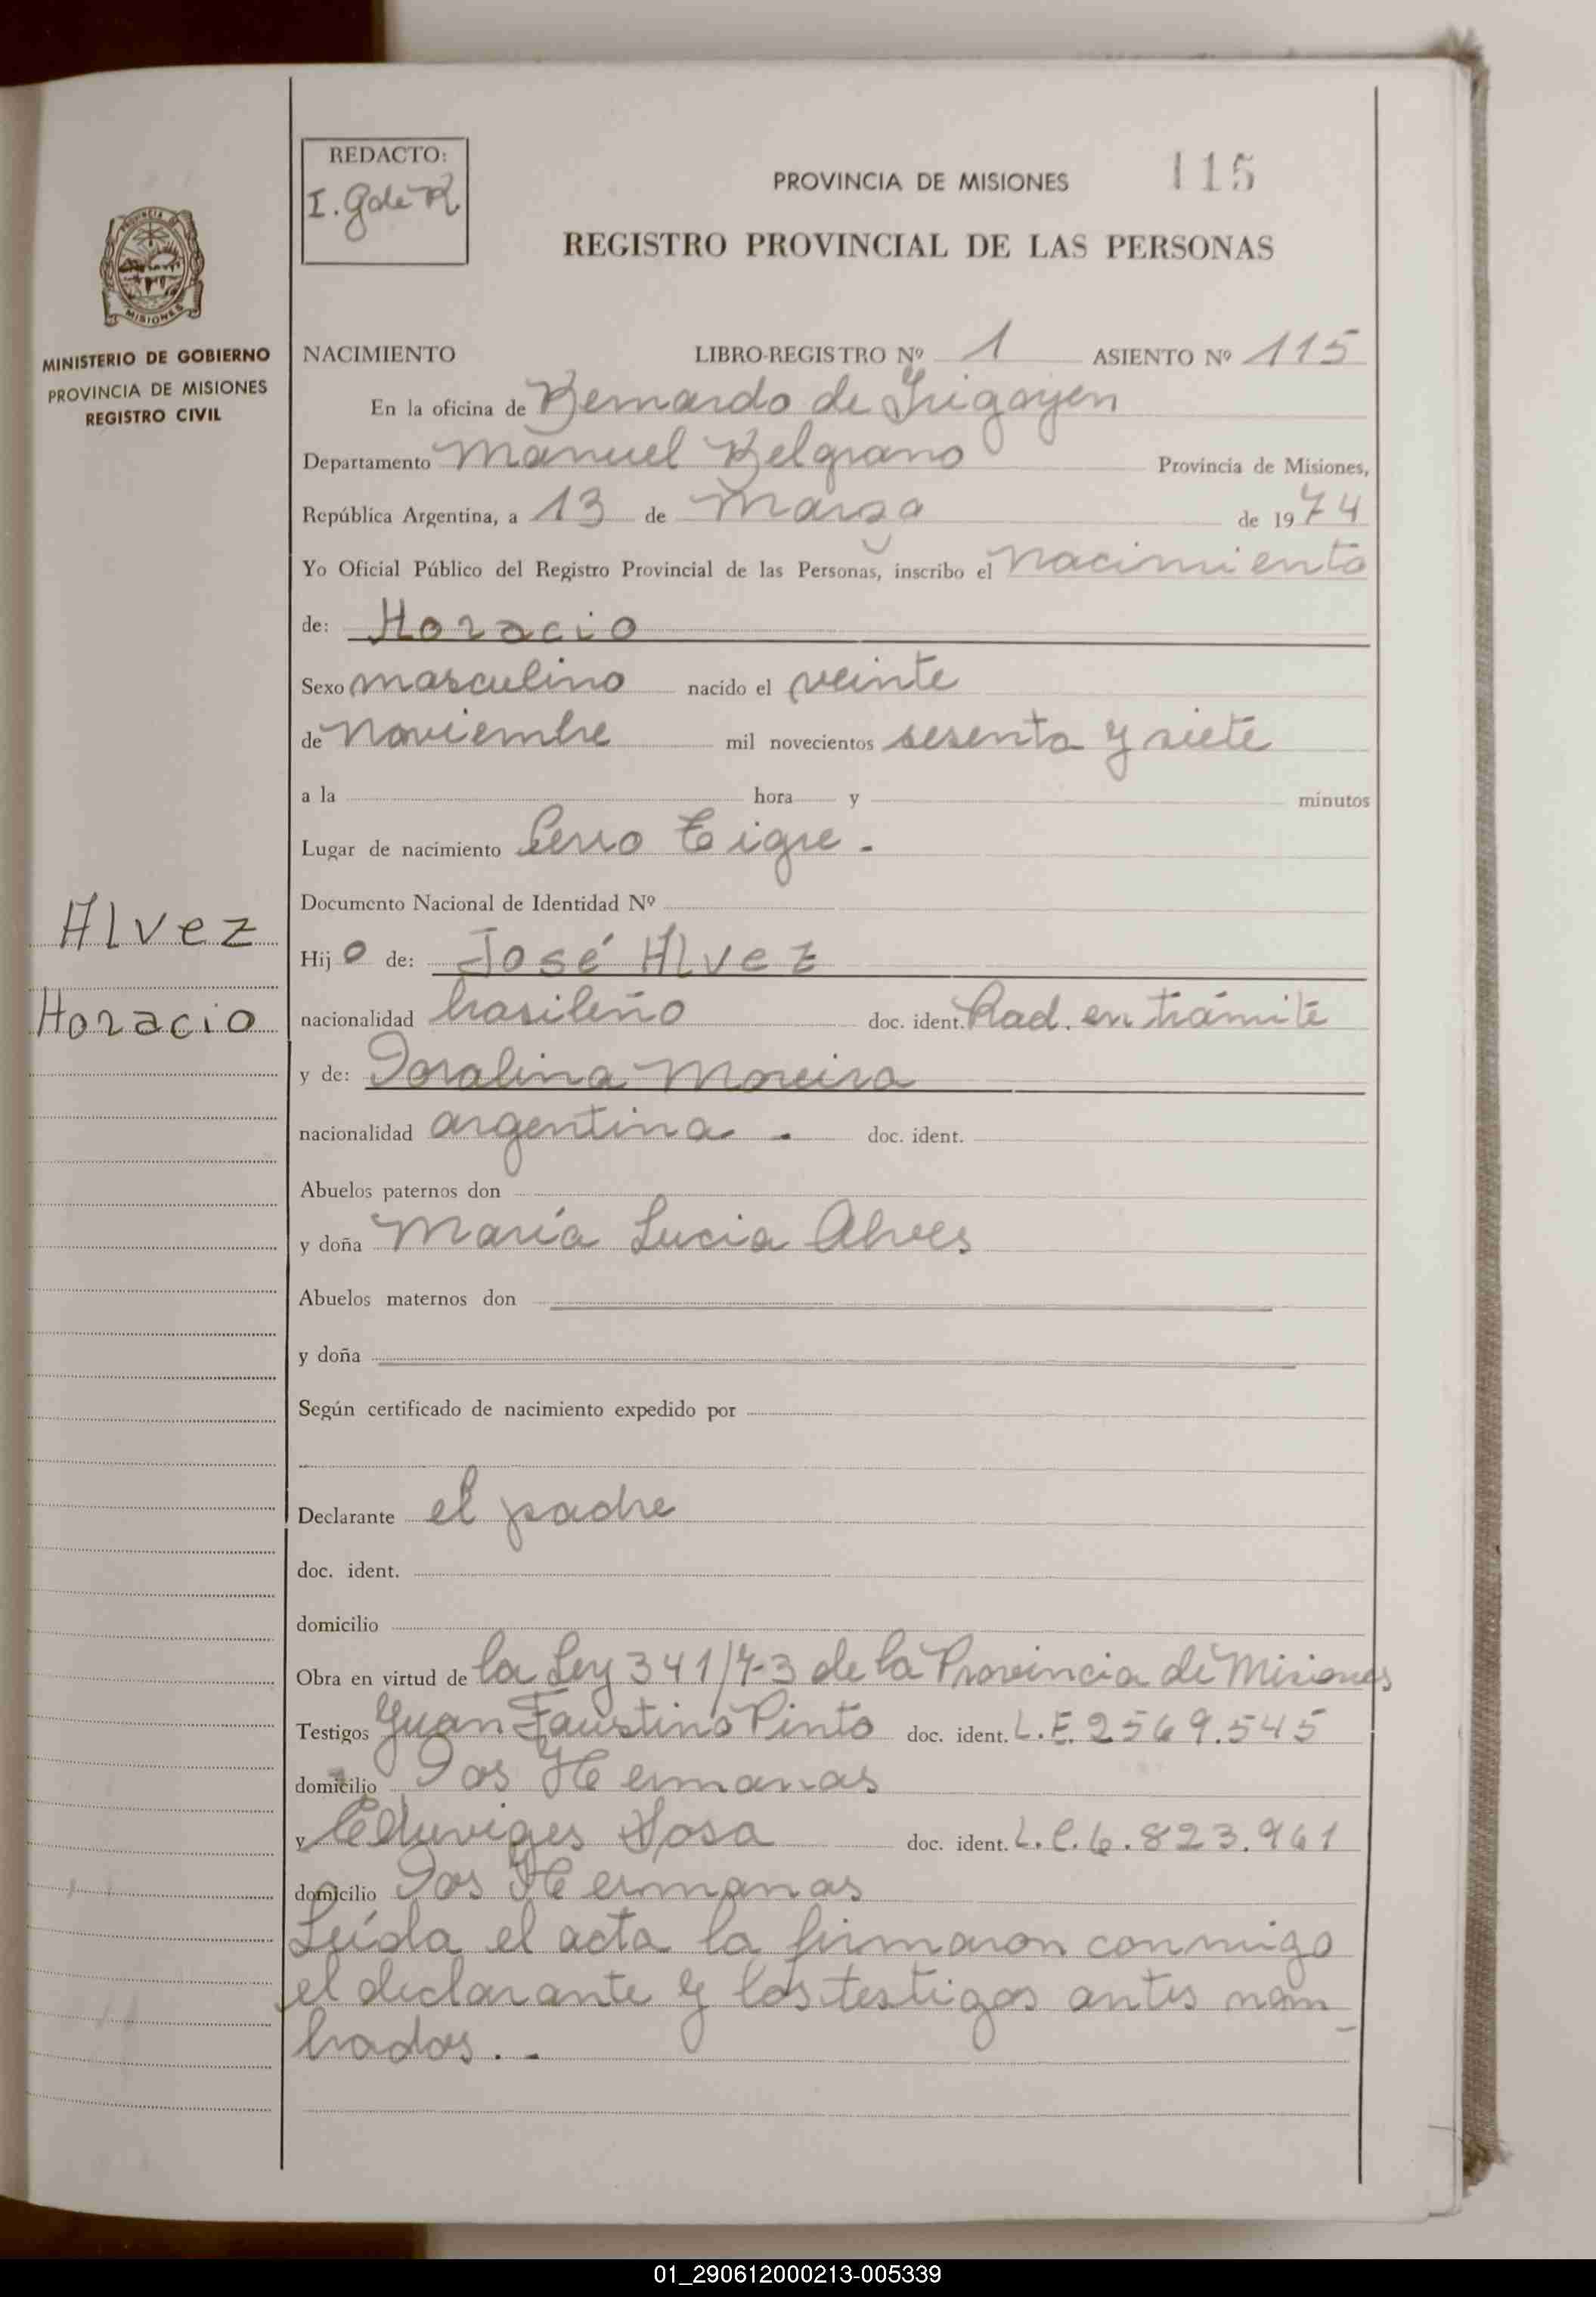 REDACTO:
I. G de R.
PROVINCIA DE MISIONES
115
REGISTRO PROVINCIAL DE LAS PERSONAS
PROVINCIA DE
MISIONES
MINISTERIO DE GOBIERNO
PROVINCIA DE MISIONES
REGISTRO CIVIL
NACIMIENTO LIBRO-REGISTRO Nº 1 ASIENTO Nº 115
En la oficina de Bernardo de Irigoyen
Departamento Manuel Belgrano Provincia de Misiones,
República Argentina, a 13 de Marzo de 1974
Yo Oficial Público del Registro Provincial de las Personas, inscribo el nacimiento
de: Horacio
Sexo masculino nacido el veinte
de noviembre mil novecientos sesenta y siete
a la hora y minutos
Lugar de nacimiento Cerro Tigre.
Documento Nacional de Identidad Nº
Alvez
Hijo de: José Alvez
Horacio
nacionalidad brasileño doc. ident. Rad. en trámite
y de: Doralina Moreira
nacionalidad argentina. doc. ident.
Abuelos paternos don
y doña María Lucia Alves
Abuelos maternos don
y doña
Según certificado de nacimiento expedido por
Declarante el padre
doc. ident.
domicilio
Obra en virtud de la Ley 341/73 de la Provincia de Misiones
Testigos Juan Faustino Pinto doc. ident. L.E. 2569.545
domicilio Dos Hermanas
y Eduviges Sosa doc. ident. L.C. 6.823.961
domicilio Dos Hermanas
Leída el acta la firmaron conmigo
el declarante y los testigos antes nom
brados. -
01_290612000213-005339